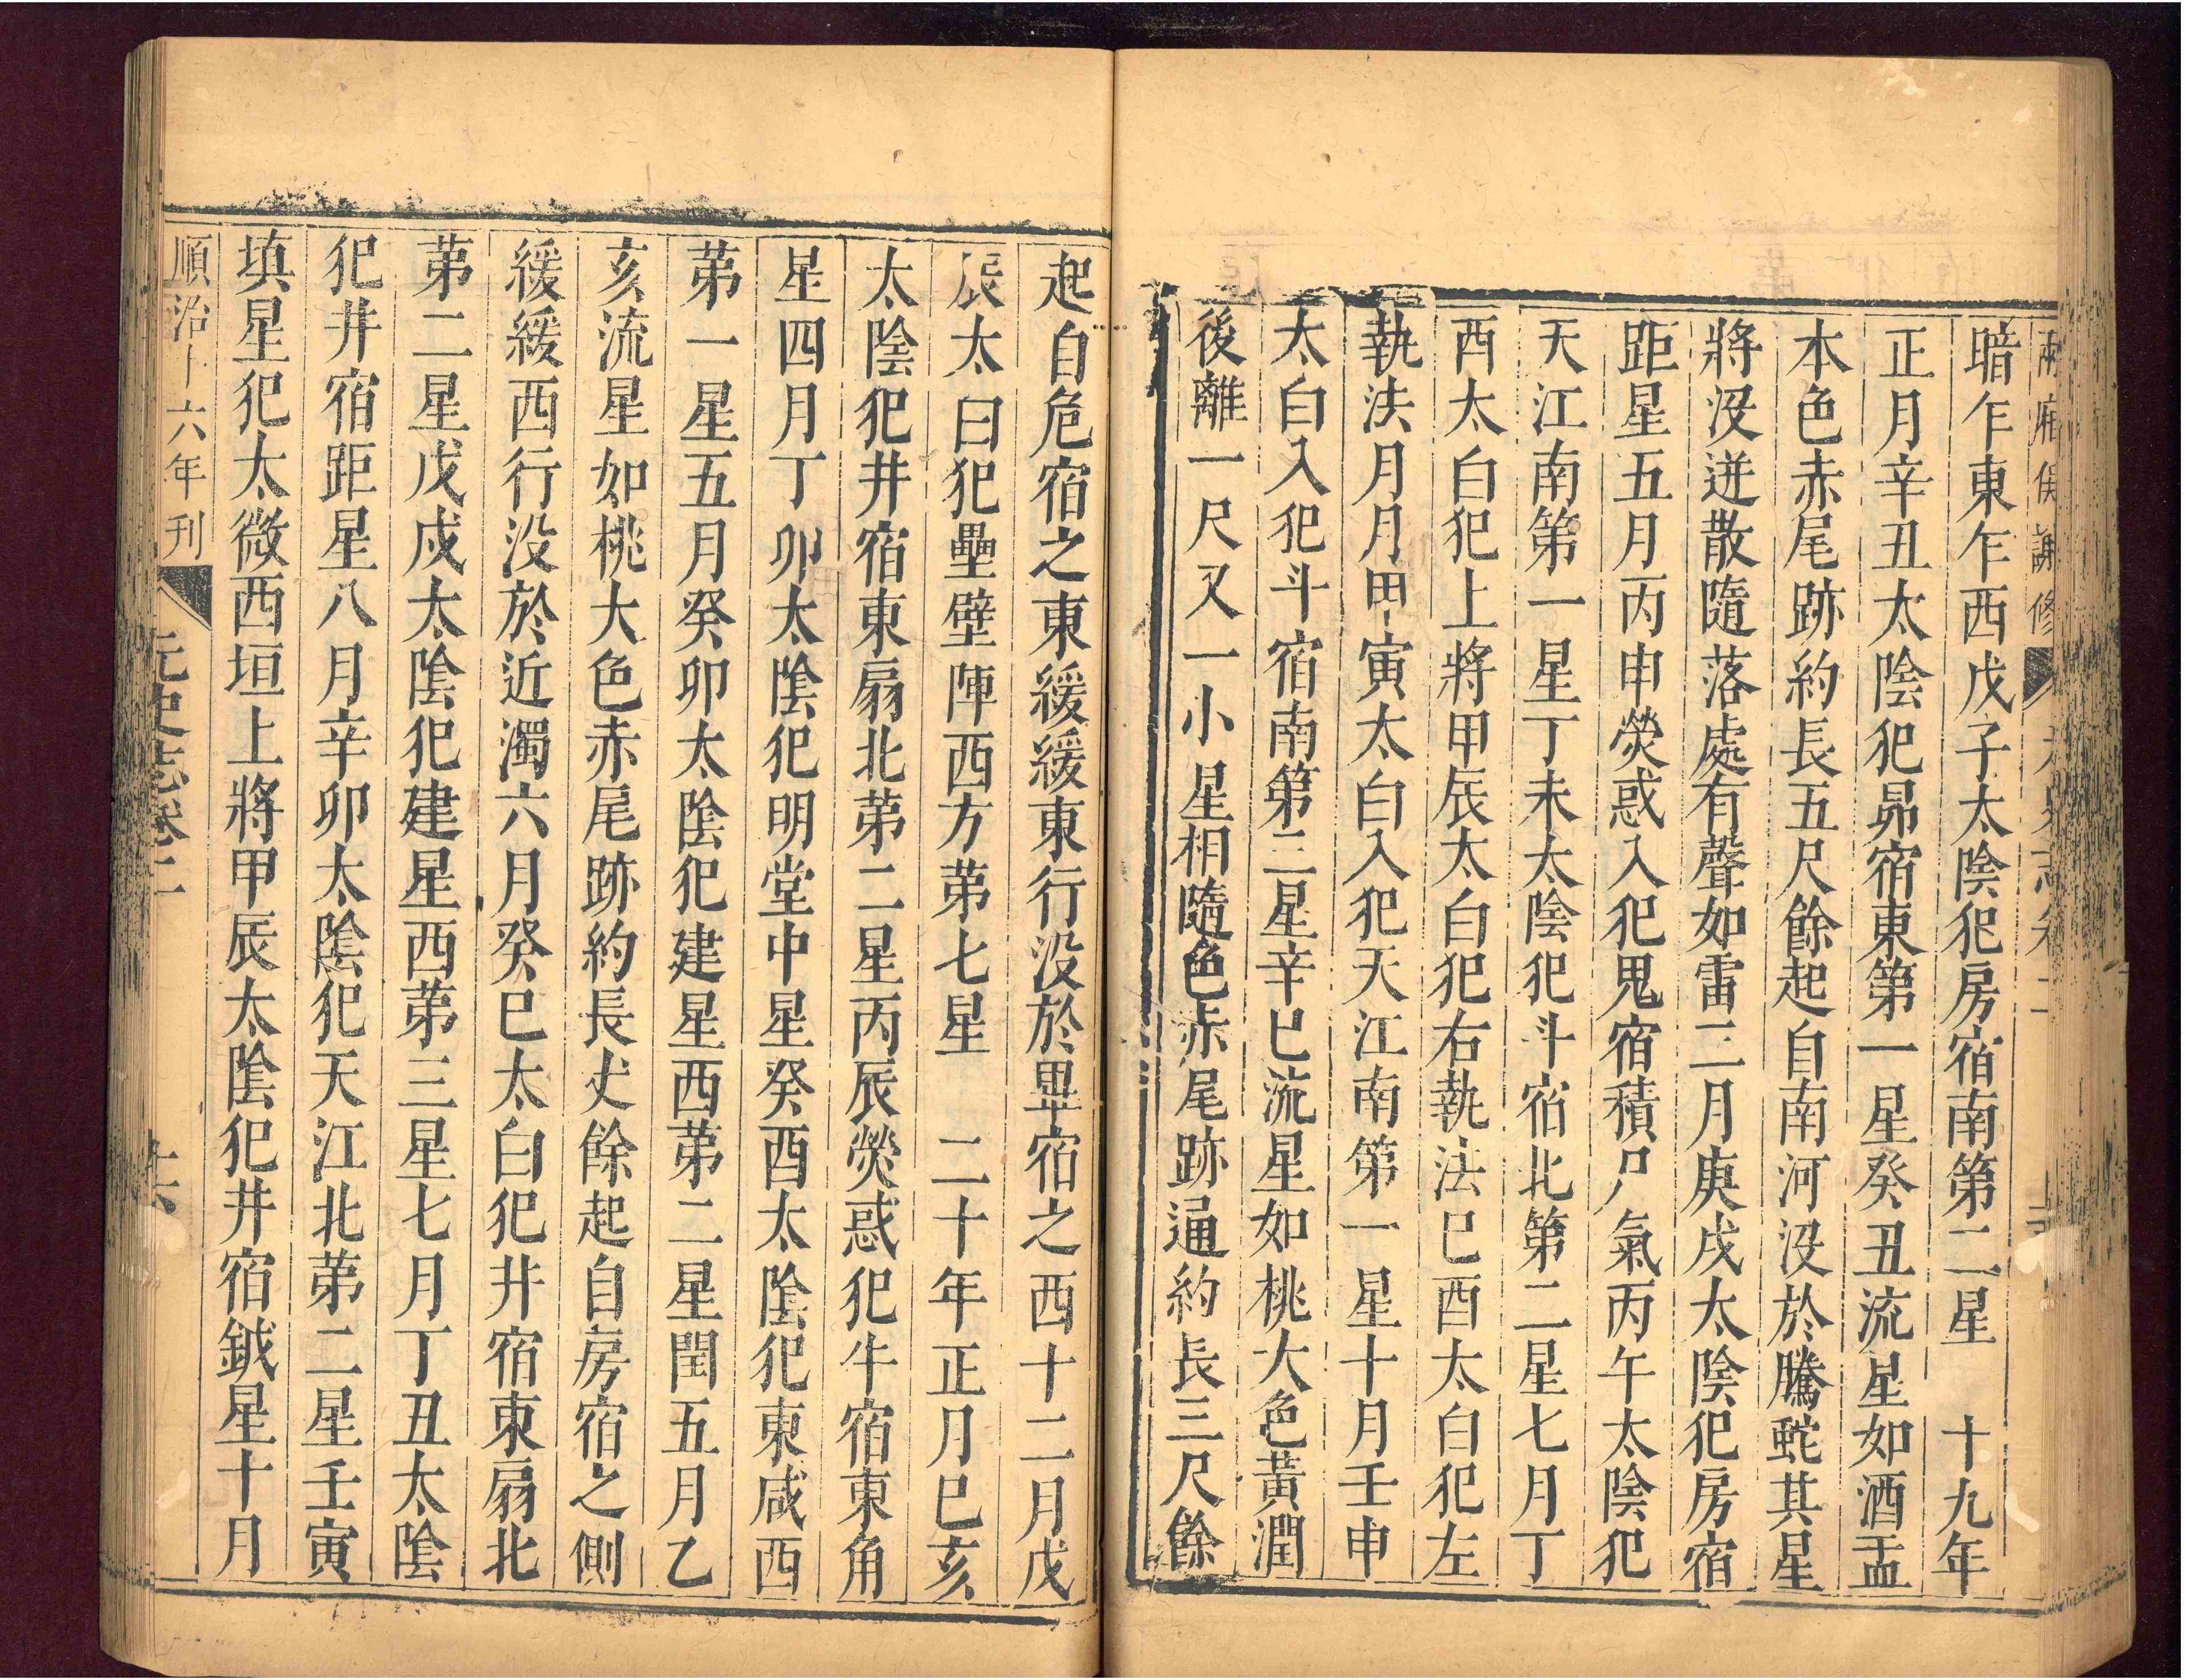 暗乍東乍西戊子太陰犯房宿南第二星　十九年
正月辛丑太陰犯昴宿東第一星癸丑流星如酒盂
本色赤尾跡約長五尺餘起自南河没於騰蛇其星
將没迸散隨落處有聲如雷三月庚戌太陰犯房宿
距星五月丙申熒惑入犯鬼宿積尸氣丙午太陰犯
天江南第一星丁未太陰犯斗宿北第二星七月丁
酉太白犯上將甲辰太白犯右執法巳酉太白犯左
執法月月甲寅太白入犯天江南第一星十月壬申
太白入犯斗宿南第三星辛巳流星如桃大色黃潤
後離一尺又一小星相隨色赤尾跡通約長三尺餘
起自危宿之東緩緩東行没於畢宿之西十二月戊
辰太白犯壘壁陣西方第七星　二十年正月巳亥
太陰犯井宿東扇北第二星丙辰熒惑犯牛宿東角
星四月丁卯太陰犯明堂中星癸酉太陰犯東咸西
第一星五月癸卯太陰犯建星西第二星閏五月乙
亥流星如桃大色赤尾跡約長丈餘起自房宿之側
緩緩西行没於近濁六月癸巳太白犯井宿東扇北
第二星戊戌太陰犯建星西第三星七月丁丑太陰
犯井宿距星八月辛卯太陰犯天江北第二星壬寅
填星犯太微西垣上將甲辰太陰犯井宿鉞星十月
順治十六年刊
元史志卷二
十六